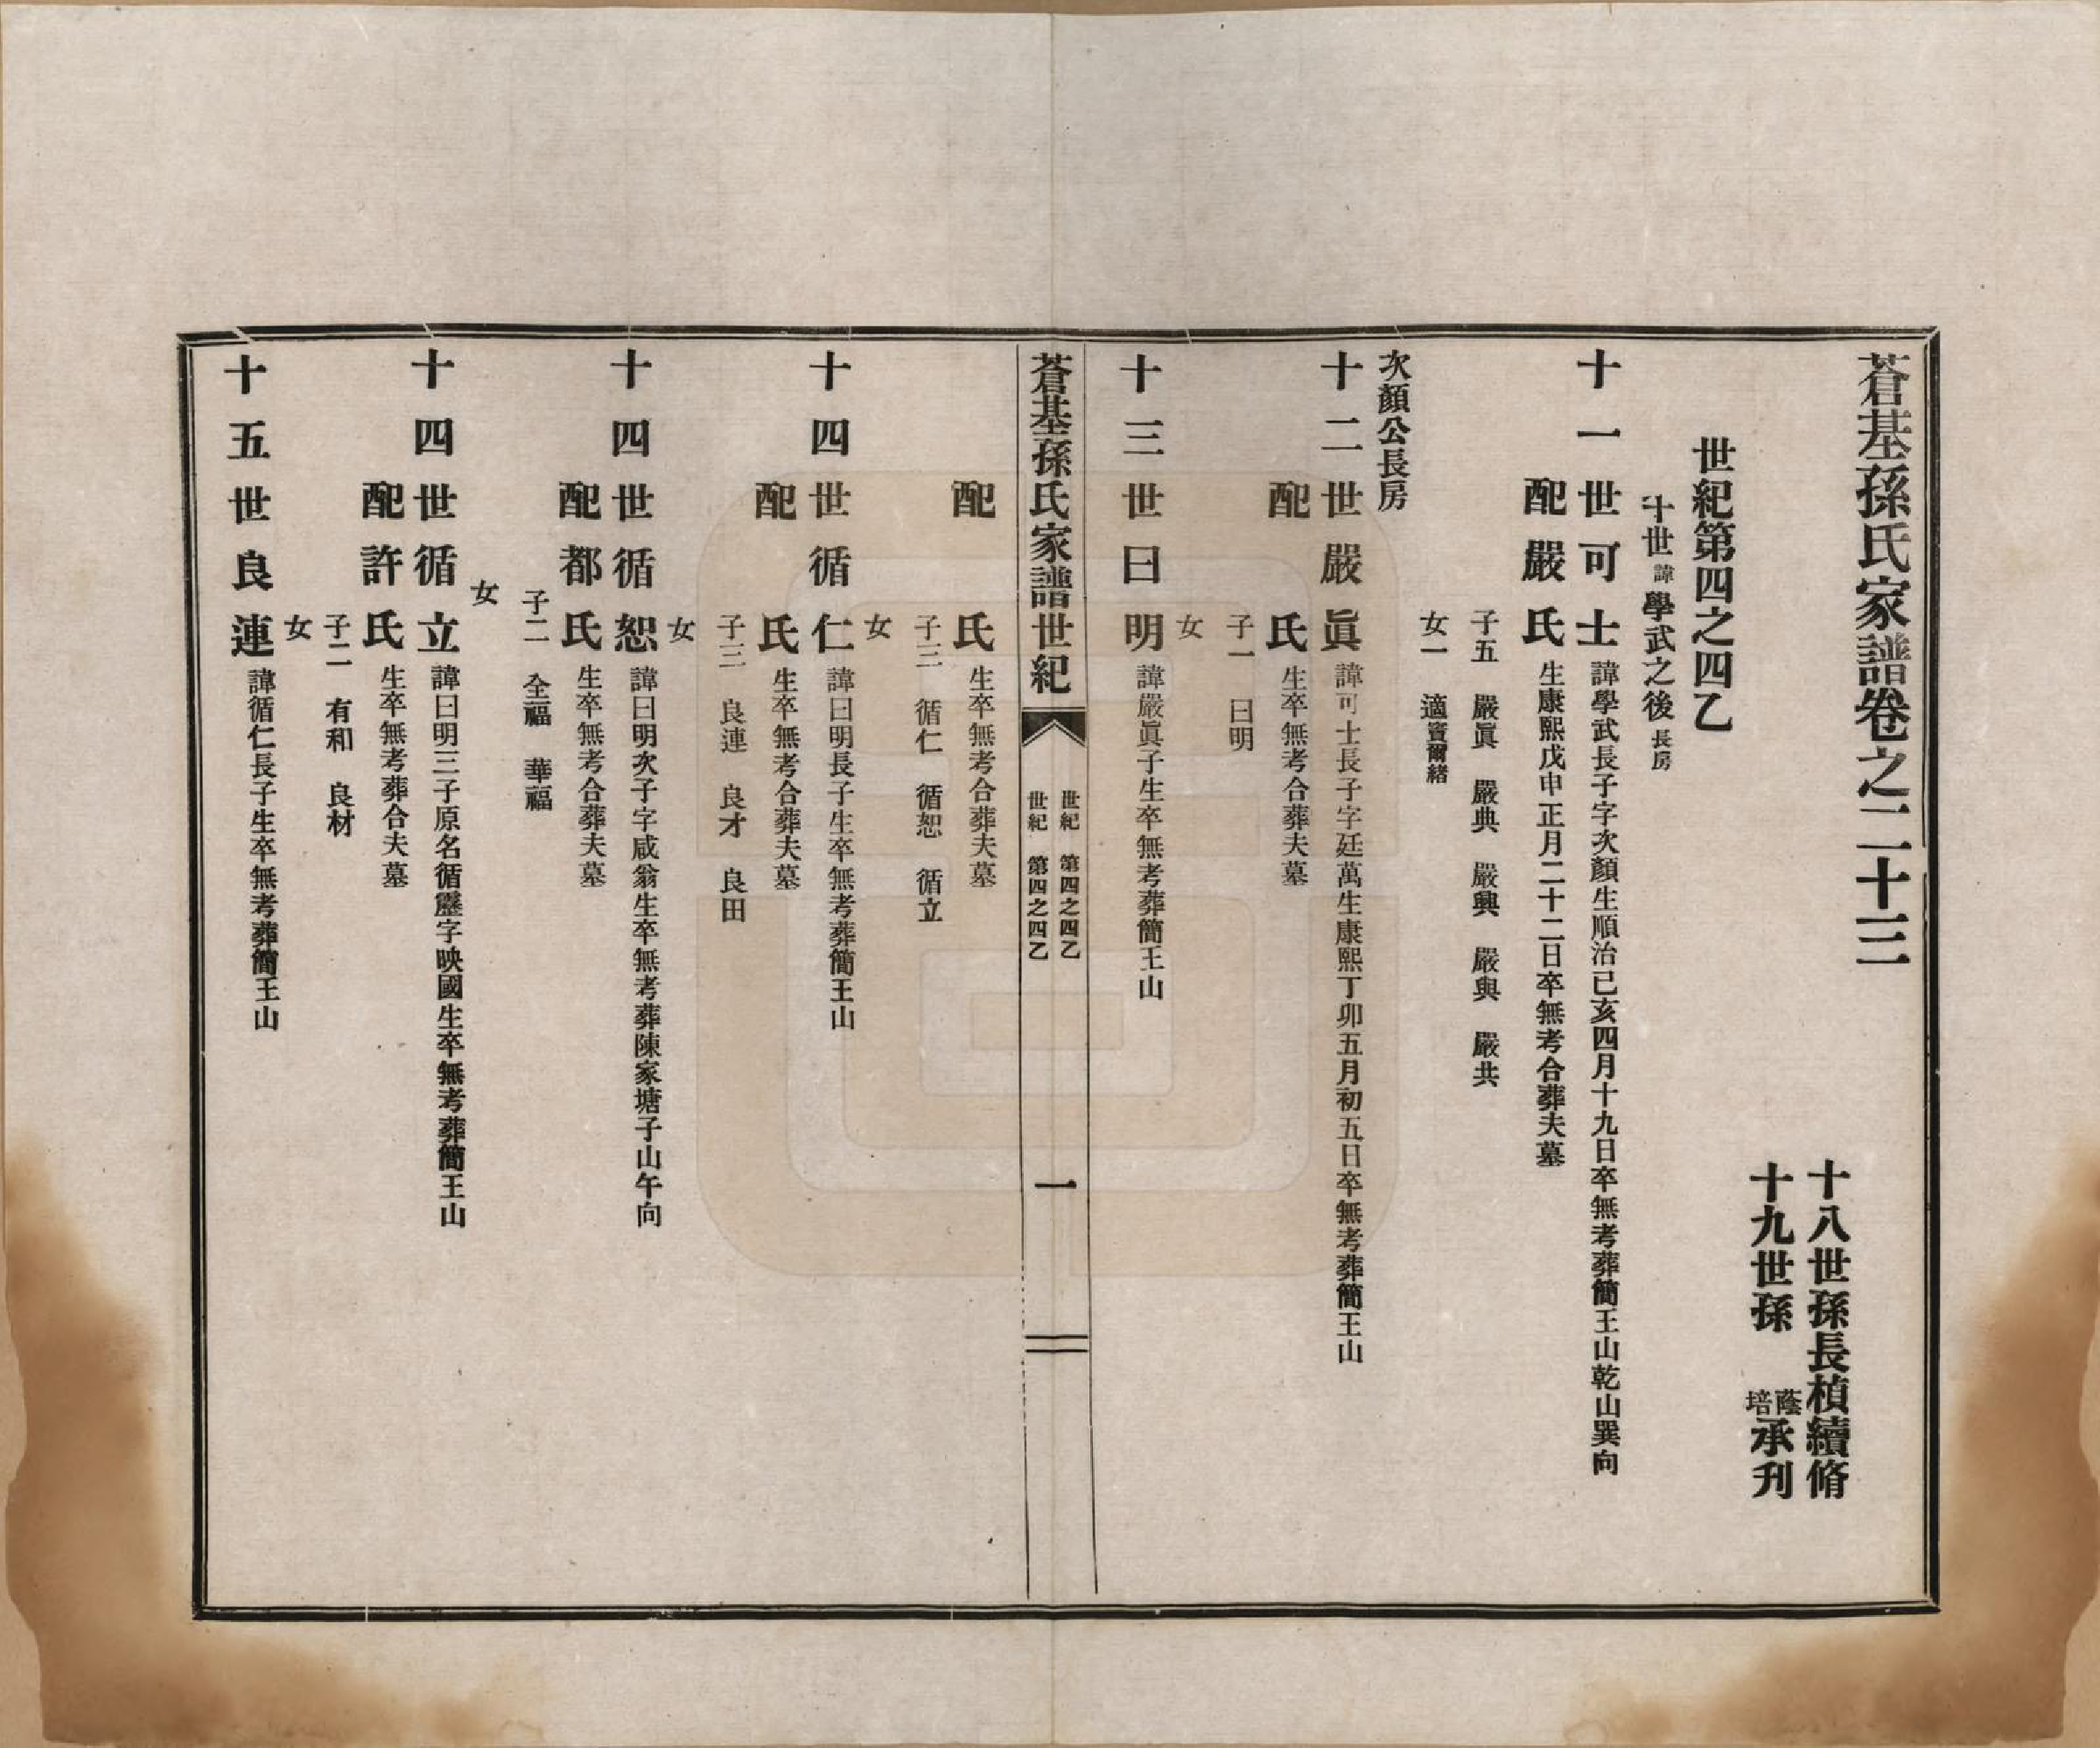 蒼基孫氏家譜卷之二十三
十八世孫長楨續脩
十九世孫蔭培承刊
世紀第四之四乙
十世諱學武之後長房
十一世可士諱學武長子字次顏生順治己亥四月十九日卒無考葬簡王山乾山巽向
配嚴氏生康熙戊申正月二十二日卒無考合葬夫墓
子五 嚴眞 嚴典 嚴興 嚴與 嚴共
女一 適竇爾緒
次顏公長房
十二世嚴眞諱可士長子字廷萬生康熙丁卯五月初五日卒無考葬簡王山
配 氏生卒無考合葬夫墓
子一 曰明
女
十三世曰明諱嚴眞子生卒無考葬簡王山
蒼基孫氏家譜世紀
世紀 第四之四乙
世紀 第四之四乙
一
配 氏生卒無考合葬夫墓
子三 循仁 循恕 循立
女
十四世循仁諱曰明長子生卒無考葬簡王山
配 氏生卒無考合葬夫墓
子三 良連 良才 良田
女
十四世循恕諱曰明次子字咸翁生卒無考葬陳家塘子山午向
配都氏生卒無考合葬夫墓
子二 全福 華福
女
十四世循立諱曰明三子原名循靋字映國生卒無考葬簡王山
配許氏生卒無考葬合夫墓
子二 有和 良材
女
十五世良連諱循仁長子生卒無考葬簡王山